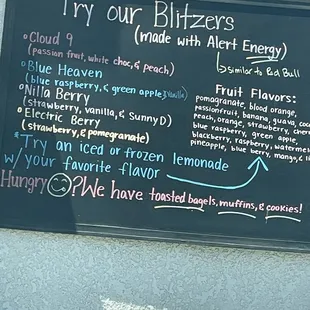 Try our Blitzers
(made with Alert Energy)
similar to Red Bull
Cloud 9
(passion fruit, white choc, & peach)
Blue Heaven
(blue raspberry, & green apple, & vanilla)
Nilla Berry
(strawberry, vanilla, & Sunny D)
Electric Berry
(strawberry, & pomegranate)
Fruit Flavors:
pomegranate, blood orange,
passionfruit, banana, guava,
peach, orange, strawberry,
blue raspberry, green apple,
blackberry, raspberry,
pineapple, blue berry, mango, &
*Try an iced or frozen lemonade
w/your favorite flavor
Hungry ?We have toasted bagels, muffins, & cookies!